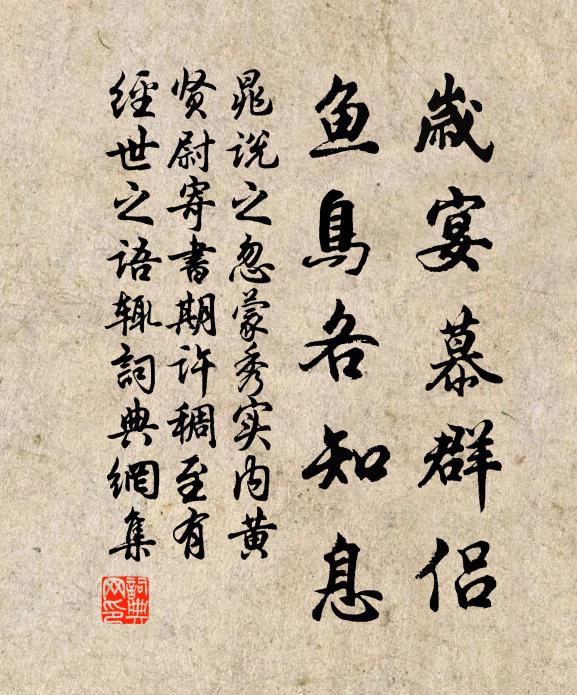 歲宴慕群侣
魚鳥各知息
晁说之忽蒙秀实内黄
贤尉寄書期许稠至有
經世之语辄詞典網集
詞典網印